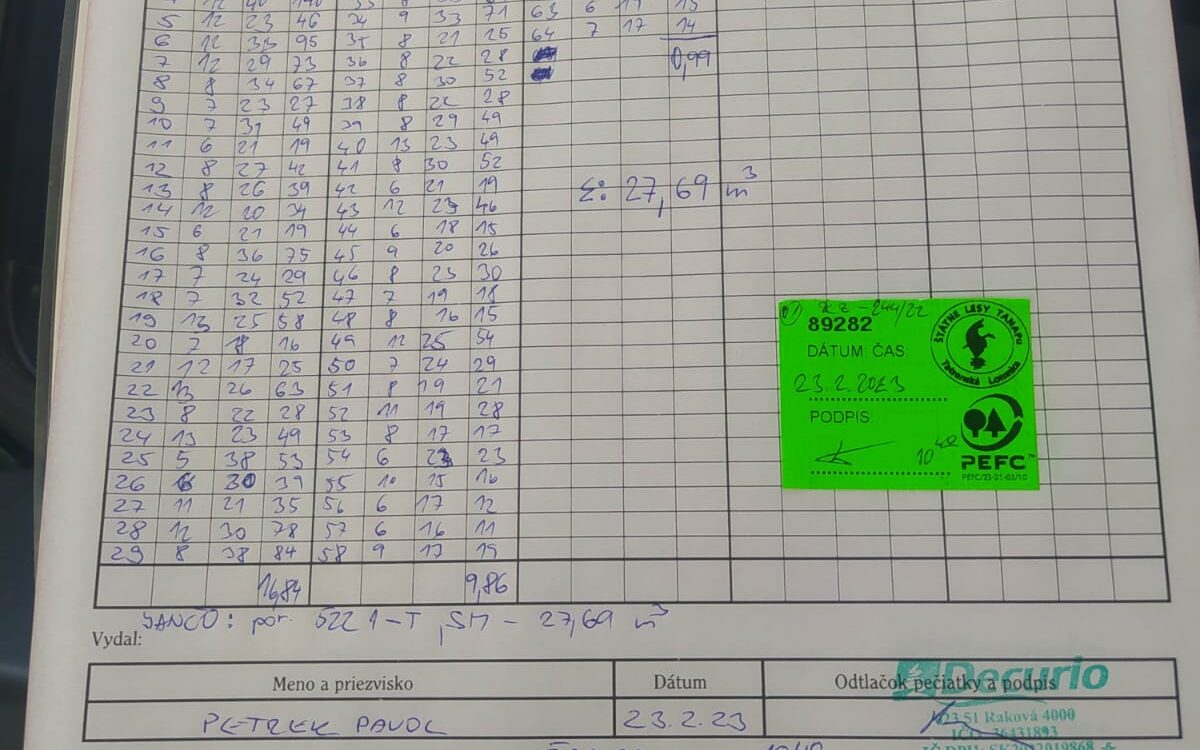 5 12 23 46 34 9 33 71 63 6 19 15
6 12 33 95 35 8 21 25 64 7 17 14
7 12 29 73 36 8 22 28 0,99
8 8 34 67 37 8 30 52
9 7 23 27 38 8 22 28
10 7 31 49 39 8 29 49
11 6 21 19 40 13 23 49
12 8 27 42 41 8 30 52
13 8 26 39 42 6 21 19
Σ: 27,69 m³
14 12 20 34 43 12 23 46
15 6 21 19 44 6 18 15
16 8 36 75 45 9 20 26
17 7 24 29 46 8 23 30
18 7 32 52 47 7 19 18
19 13 25 58 48 8 16 15
20 7 18 16 49 12 25 54
21 12 17 25 50 7 24 29
22 13 26 63 51 8 19 21
23 8 22 28 52 11 19 28
24 13 23 49 53 8 17 17
25 5 38 53 54 6 23 23
26 6 30 39 55 10 15 16
27 11 21 35 56 6 17 12
28 12 30 78 57 6 16 11
29 8 38 84 58 9 17 19
16,84 9,86
244/22
89282
DÁTUM: ČAS:
23.2.2023
PODPIS:
10
ŠTÁTNE LESY TANAPu
Tatranská Lomnica
PEFC™
PEFC/23-21-03/10
JANČO: por. 522 1-T, SM - 27,69 m³
Vydal:
Meno a priezvisko Dátum Odtlačok pečiatky a podpis
PETREK PAVOL 23.2.23
Decurio
023 51 Raková 4000
IČO: 36431893